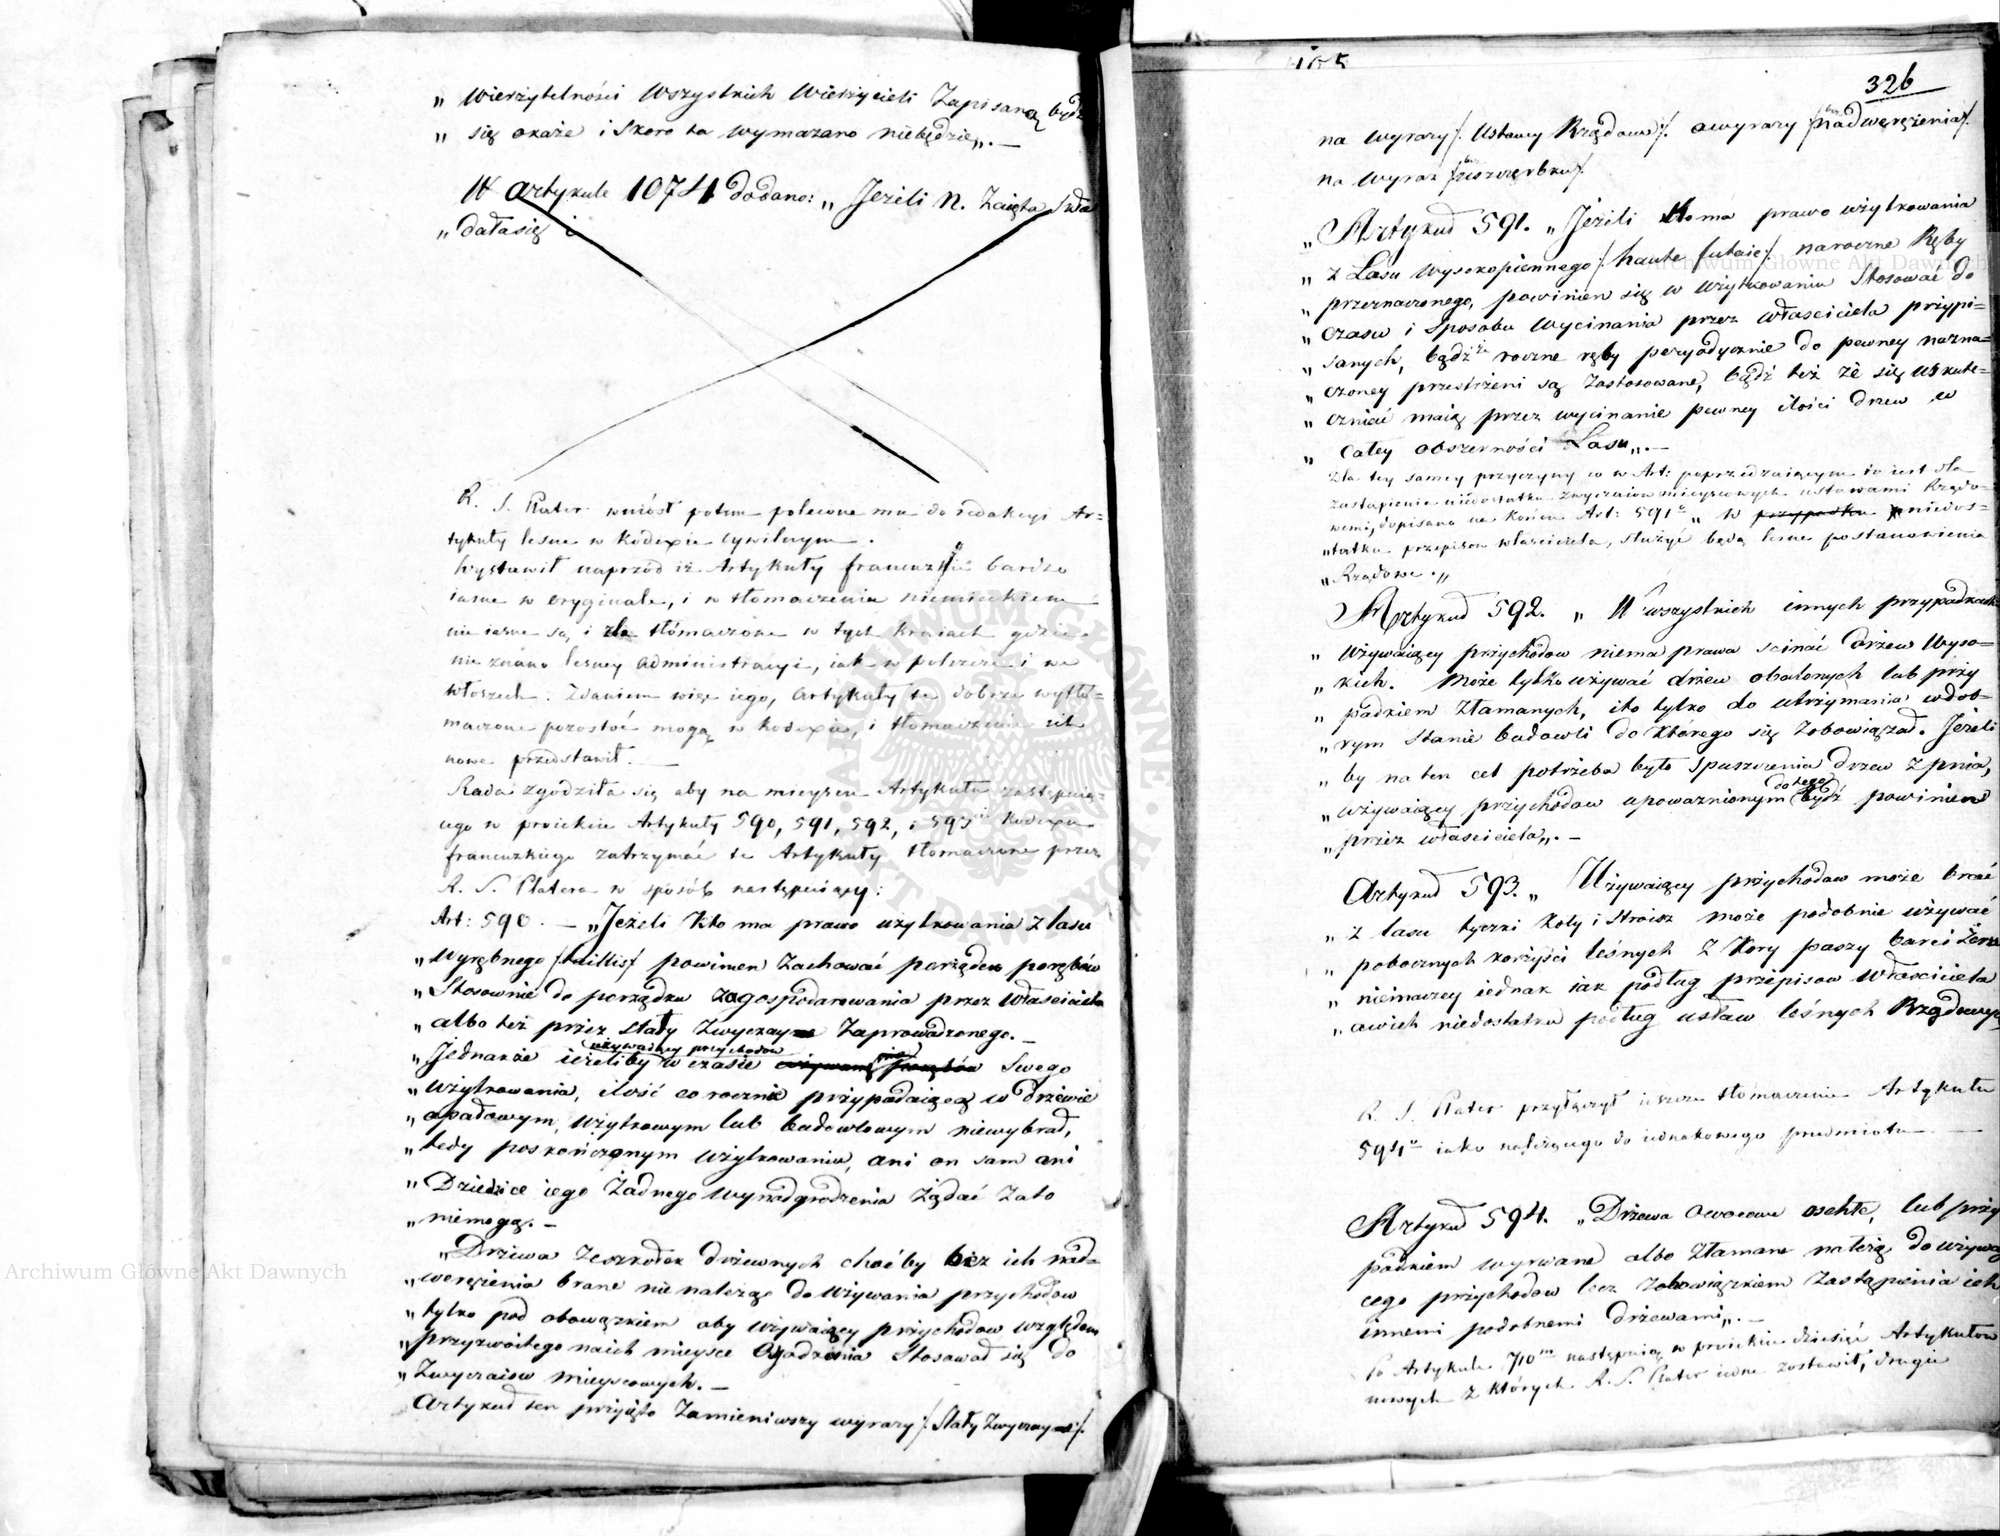 „ wierzytelności wszystkich Wierzycieli Zapisaną będz
„ się okaże i Skoro ta wymazano niebędzie„. —
W artykule 1074 dodano: „ Jeżeli N. Zaięta
„ dałasię i
R. S. Plater wniósł potem polecone mu do redakcyi Ar=
tykuły leśne w Kodexie cywilnym.
Wystawił naprzód iż Artykuły francuzkie bardzo
iasne w oryginale, i w tłomaczeniu niemieckiem
nie iasne są, i źle tłómaczone w tych kraiach gdzie
nie znano leśney administracyi, iak w polszcze i we
włoszech. Zdaniem więc iego, artykuły te dobrze wytłó=
maczone pozostać mogą w Kodexie, i tłomaczenie ich
nowe przedstawił. —
Rada zgodziła się aby na mieyscu Artykułu zastępuią=
cego w proiekcie Artykuły 590, 591, 592, i 593 Kodexu
francuzkiego zatrzymać te Artykuły tłomaczone przez
R. S. Platera w sposób następuiący:
Art: 590. — „Jeżeli Kto ma prawo użytkowania z lasu
„ wyrębnego /taillis/ powinien Zachować porządek porębów
„ Stosownie do porządku zagospodarowania przez właściciela
„ albo też przez stały Zwyczay Zaprowadzonego. —
używaiący przychodów
„ Jednakże ieżeliby w czasie swego
„ użytkowania, ilość corocznie przypadaiącą w drzewie
„ opałowym, użytkowym lub budowlowym niewybrał,
„ tedy poskończonym użytkowaniu, ani on sam ani
„ Dziedzice iego Żadnego wynadgrodzenia Żądać Zato
„ niemogą. —
„ Drzewa Zeszkółek drzewnych choćby bez ich nad=
„ weręzienia brane nie należąc do używania przychodów
„ tylko pod obowązkiem aby używaiący przychodów względem
„ przyzwoitego naich mieysce Osadzenia Stosował się do
„ Zwyczaiów mieyscowych. —
Artykuł ten przyięto Zamieniwszy wyrazy /: Stały Zwyczay :/
326
na wyrazy /: Ustawy Rządowe :/. a wyrazy /: bez nadweręzienia :/.
na wyraz /: bez uszczerbku :/.
„ Artykuł 591. „ Jeżeli Kto ma prawo użytkowania
„ z Lasu wysokopiennego /: haute futaie :/ naroczne Ręby
„ przeznaczonego, powinien się w użytkowaniu Stosować do
„ czasu i Sposobu wycinania przez właściciela przypi=
„ sanych, bądź że roczne ręby peryodycznie do pewney nazna=
„ czoney przestrzeni są Zastosowane, bądź też że się uskute=
„ czniać maią przez wycinanie pewney ilości drzew w
„ Całey obszerności Lasu„. —
Dla tey samey przyczyny co w Art: poprzedzaiącym to iest dla
zastąpienia niedostatku zwyczaiów mieyscowych ustawami Rządo=
wemi, dopisano na końcu Art: 591º „ w przypadku niedos=
„ tatku przepisów właściciela, służyć będą leśne postanowienia
„ Rządowe. „
Artykuł 592. „ W wszystkich innych przypadkach
„ używaiący przychodów niema prawa scinać drzew wyso=
„ kich. Może tylko używać drzew obalonych lub przy
„ padkiem Złamanych, ito tylko do utrzymania w dob=
„ rym Stanie budowli do którego się Zobowiązał. Jeżeli
„ by na ten cel potrzeba było Spuszczenia drzew z pnia,
do tego
„ używaiący przychodów upoważnionym bydź powinien
„ przez właściciela„. —
Artykuł 593. „ Używaiący przychodów może brać
„ z lasu tyczki Koły i Stroisz może podobnie używać
„ pobocznych korzyści leśnych z Kory paszy barci Żeru
„ nieinaczey iednak iak podług przepisów właściciela
„ awich niedostatku podług ustaw leśnych Rządowych
R. S. Plater przyłączył ieszcze tłomaczenie Artykułu
594º iako należącego do iednakowego przedmiotu —
Artykuł 594. „ Drzewa Owocowe oschłe, lub przy
padkiem wyrwane albo Złamane należą do używaią
cego przychodów lecz z obowiązkiem Zastąpienia ich
innemi podobnemi drzewami„. —
Po Artykule 710 następuią w proiekcie dziesięć Artykułów
nowych z których R. S. Plater iedne zostawił, drugie